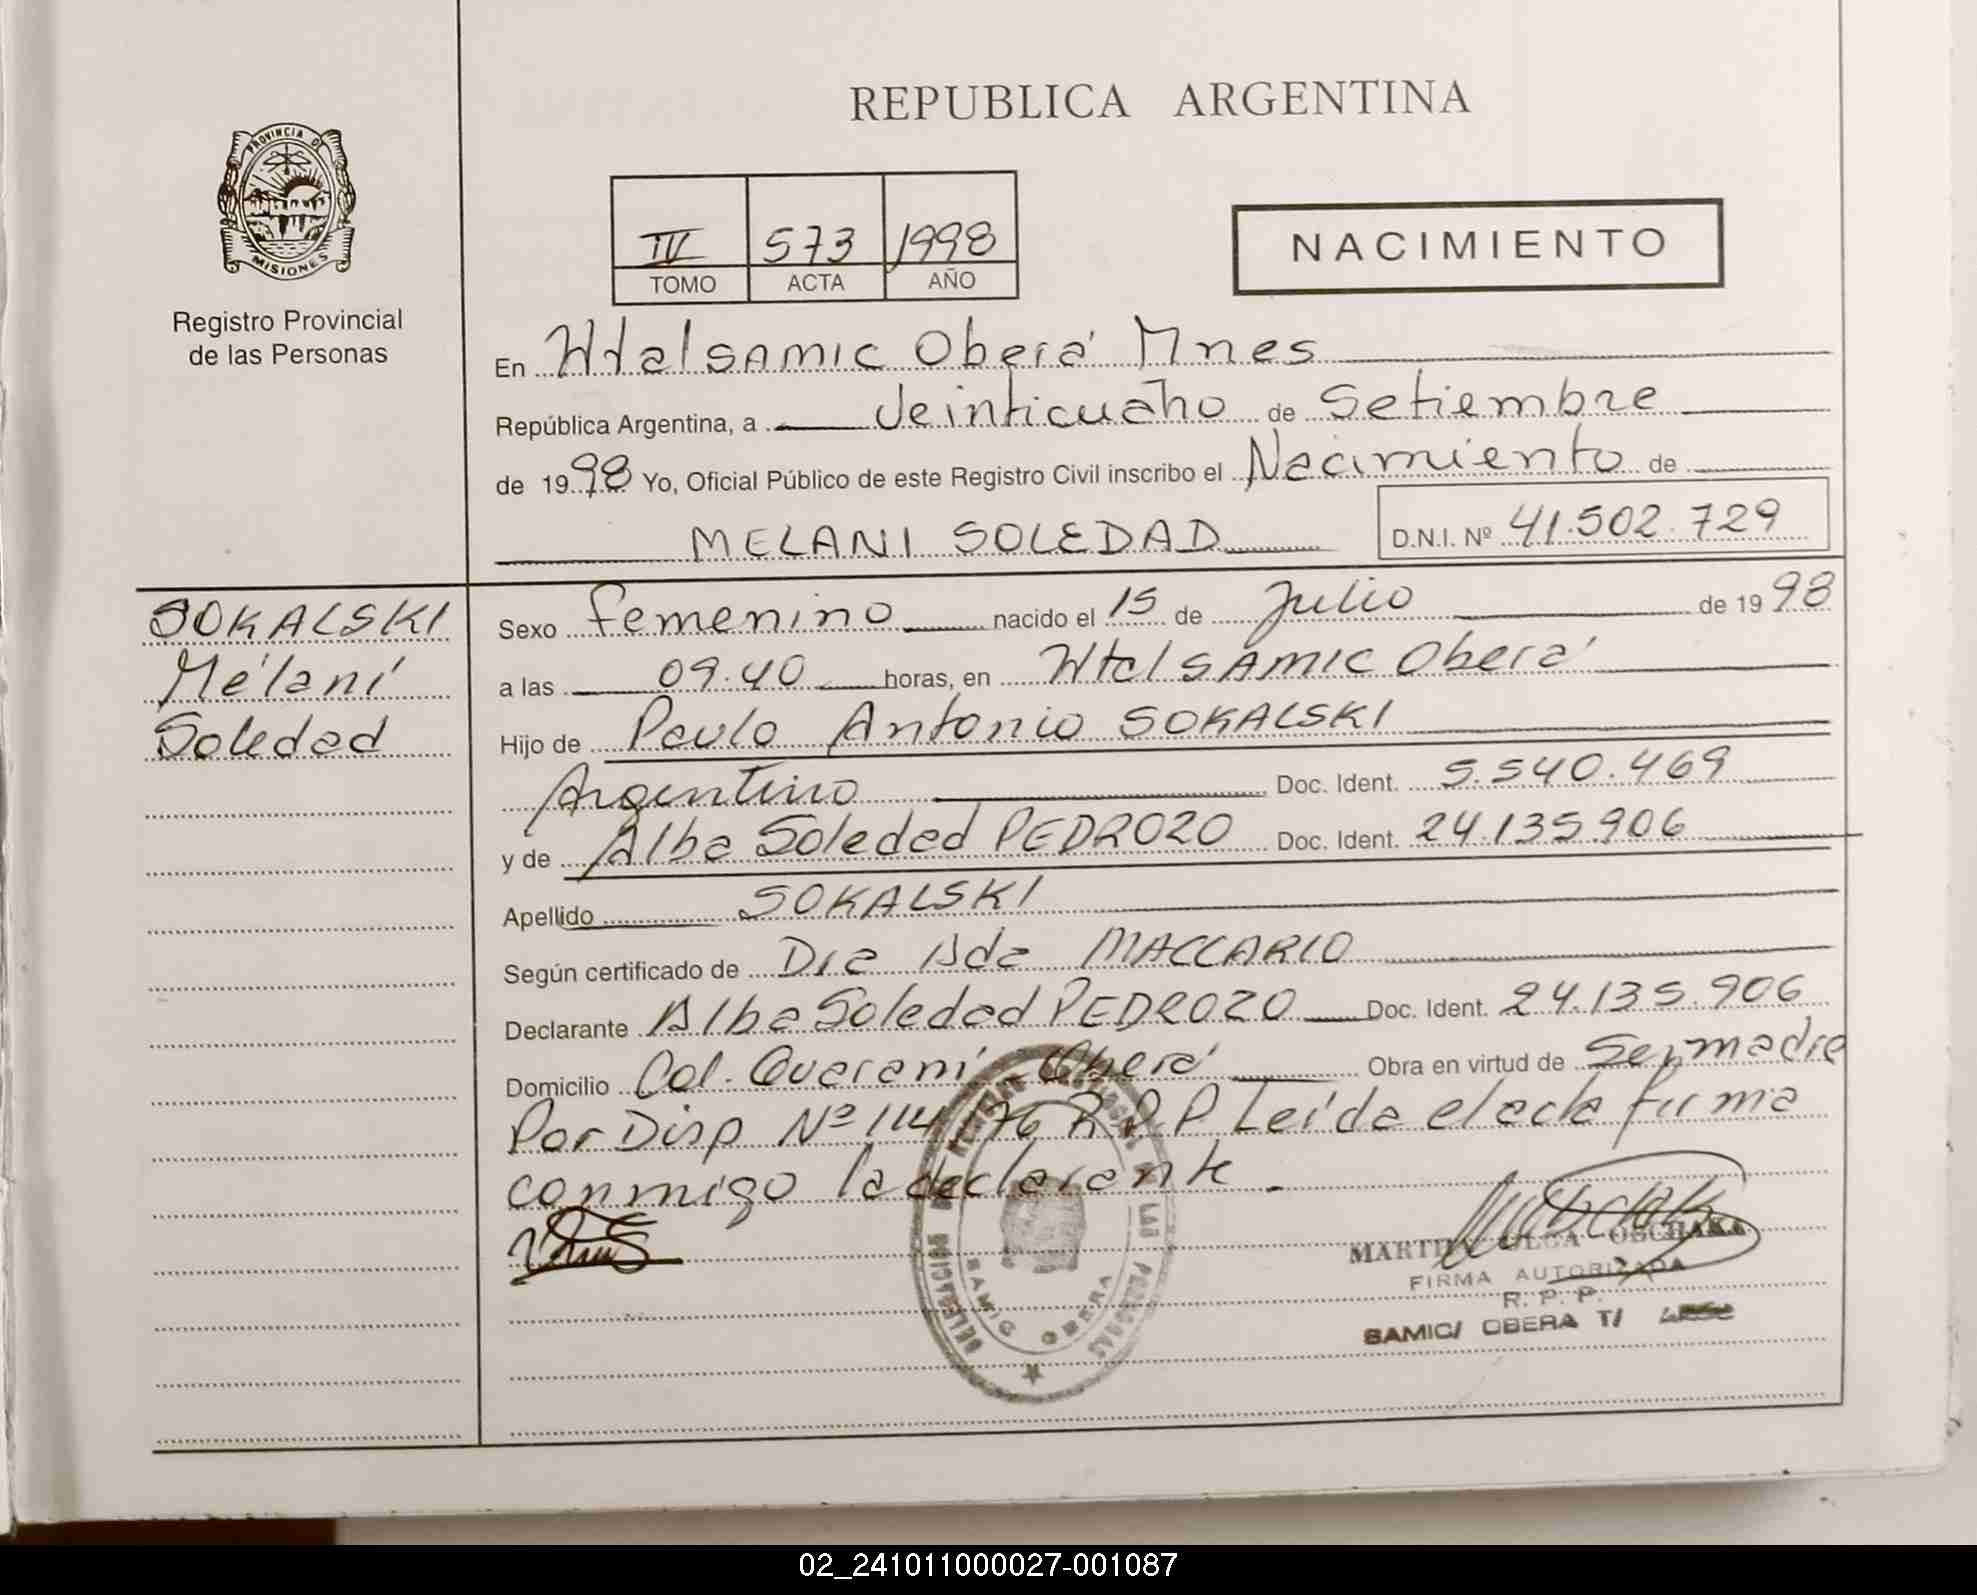 REPUBLICA ARGENTINA
PROVINCIA DE
MISIONES
Registro Provincial
de las Personas
IV 573 1998
TOMO ACTA AÑO
NACIMIENTO
En Htal SAMIC Oberá Mnes
República Argentina, a Veinticuatro de Setiembre
de 1998 Yo, Oficial Público de este Registro Civil inscribo el Nacimiento de
MELANI SOLEDAD D.N.I. Nº 41.502.729
SOKALSKI
Mélaní
Soledad
Sexo femenino nacido el 15 de Julio de 1998
a las 09.40 horas, en Htal SAMIC Oberá
Hijo de Paulo Antonio SOKALSKI
Argentino Doc. Ident. 5.540.469
y de Alba Soledad PEDROZO Doc. Ident. 24.135.906
Apellido SOKALSKI
Según certificado de Dra Ada MACCARIO
Declarante Alba Soledad PEDROZO Doc. Ident. 24.135.906
Domicilio Col. Guaraní - Oberá Obra en virtud de Ser madre
Por Disp Nº 114/76 R.P.P Leída el acta firma
conmigo la declarante.
DELEGACION LAS PERSONAS
SAMIC OBERA
MARTHA OLGA OSCHAKA
FIRMA AUTORIZADA
R. P. P.
SAMIC/ OBERA T/
02_241011000027-001087